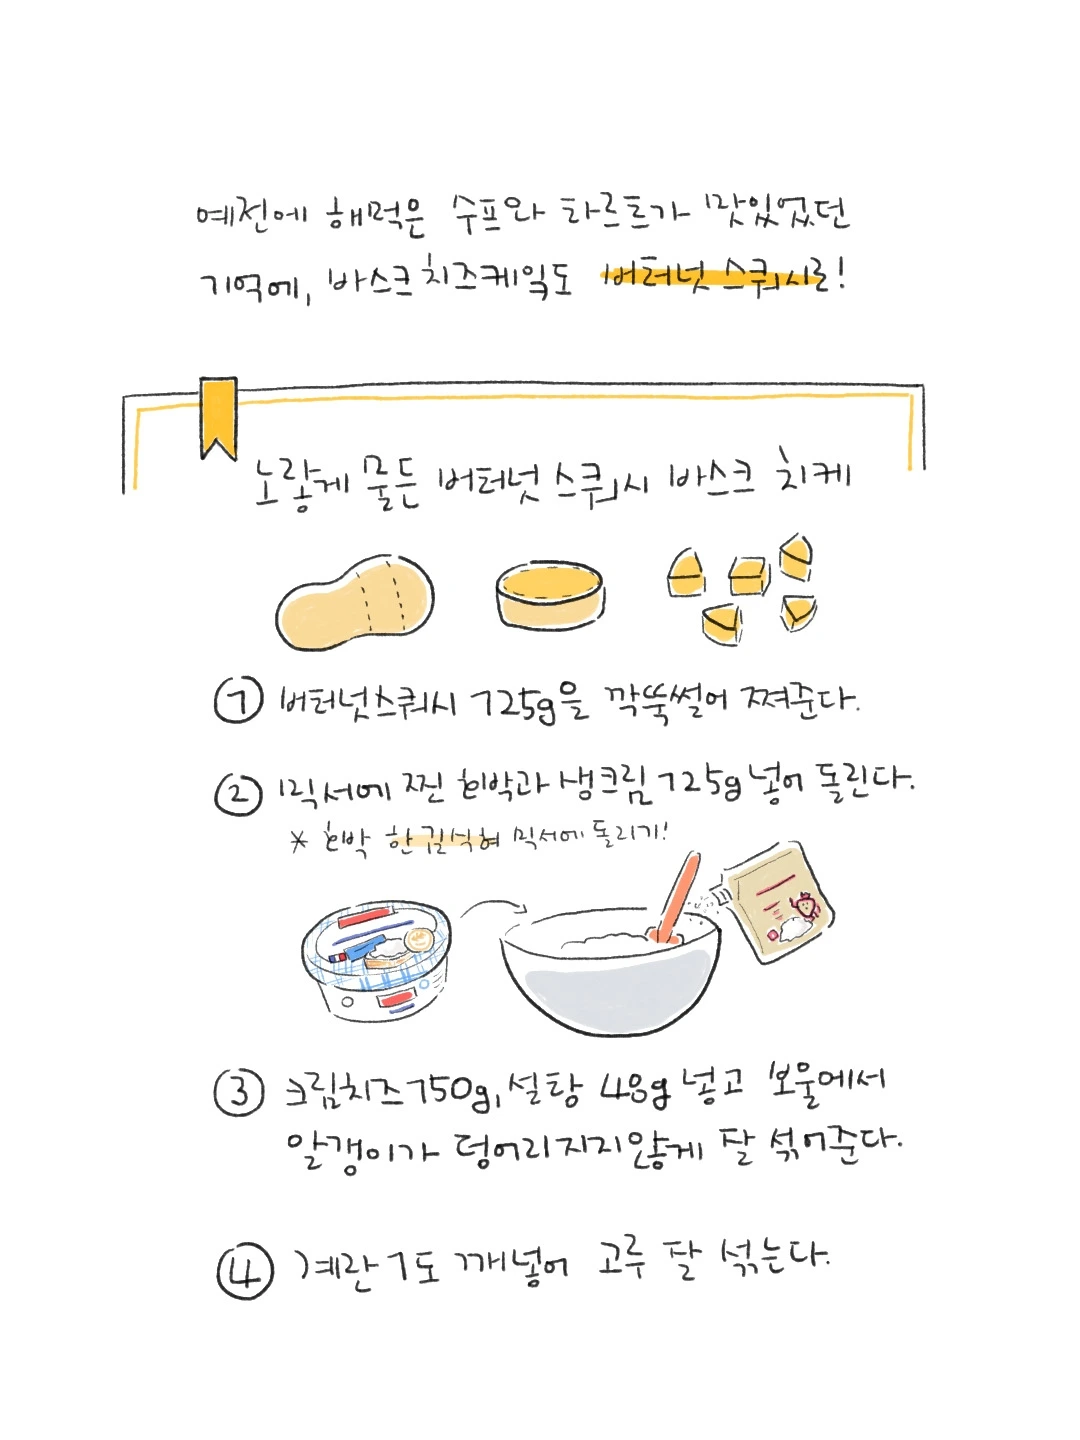 예전에 해먹은 수프와 타르트가 맛있었던
기억에, 바스크치즈케익도 버터넛 스쿼시로!
노랗게 물든 버터넛 스쿼시 바스크 치케
① 버터넛스쿼시 125g을 깍뚝썰어 쪄준다.
② 믹서에 찐 호박과 생크림 125g 넣어 돌린다.
* 호박 한김식혀 믹서에 돌리기!
③ 크림치즈 150g, 설탕 48g 넣고 보울에서
알갱이가 덩어리지지않게 잘 섞어준다.
④ 계란 1도 깨넣어 고루 잘 섞는다.